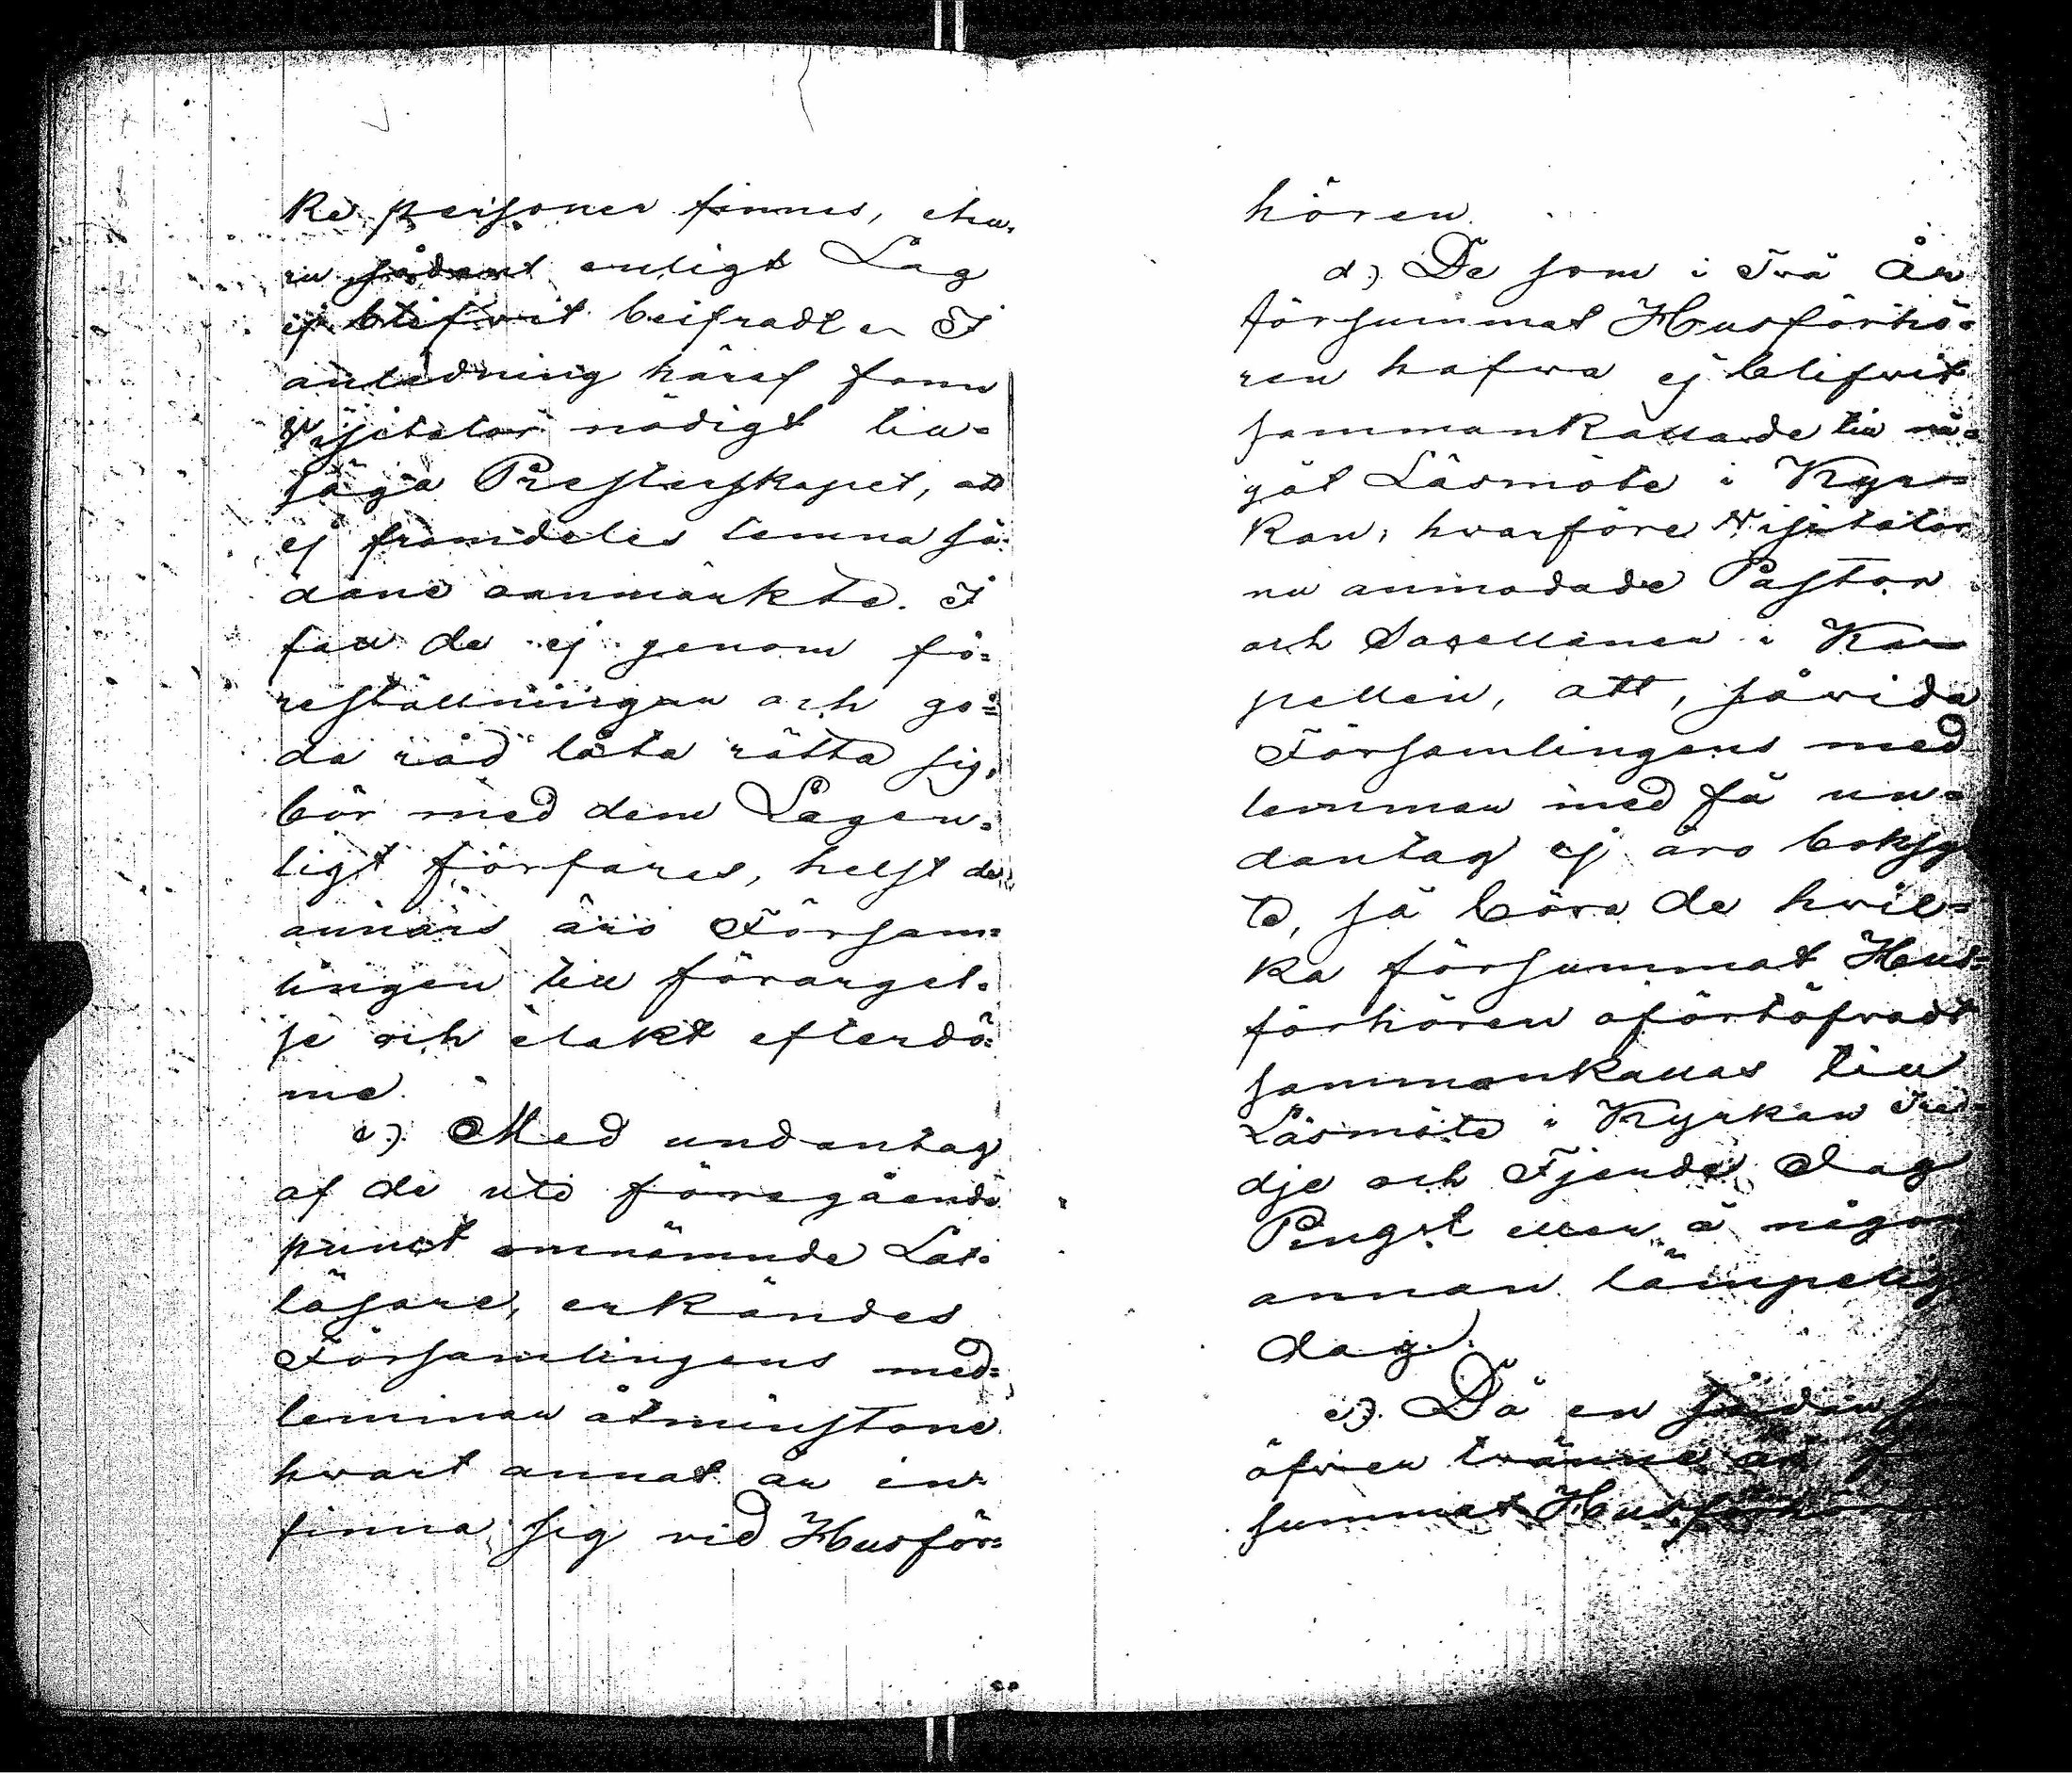 ke personer finnes, ehu-
ru sådant enligt Lag
ej blifvit beifradt. I
anledning häraf fann
Visitator nödigt till=
säga Presterskapet, att
ej framdeles lemna så-
dane oanmärkte. I
fall de ej genom fö=
reställningar och go=
da råd låta rätta sig,
bör med dem Lagen=
ligt förfaras, helst de
annars äro Försam=
lingen till förargel=
se och elakt efterdö=
me.
c). Med undantag
af de uti föregående
punct omnämnde Lat=
läsare, erkändes
Församlingens med=
lemmar åtminstone
hvart annat år in=
finna sig vid Husför=
hören.
d). De som i Två År
försummat Husförhö=
ren hafva ej blifvit
sammankallade till nå=
got Läsmöte i Kyr=
kan, hvarföre Visitator
nu anmodade Pastor
och Sacellanen i Ka=
pellen, att, såvida
Församlingens med
lemmar med få un=
dantag ej äro boksyn
te, så böra de hvil=
ka försummat Hus=
förhören oförtöfvadt
sammankallas till
Läsmöte i Kyrkan Tre=
dje och Fjerde Dag
Pingst eller å någon
annan lämpelig
dag.
e). Då en sådan
öfver tvänne år
summat Husförhören